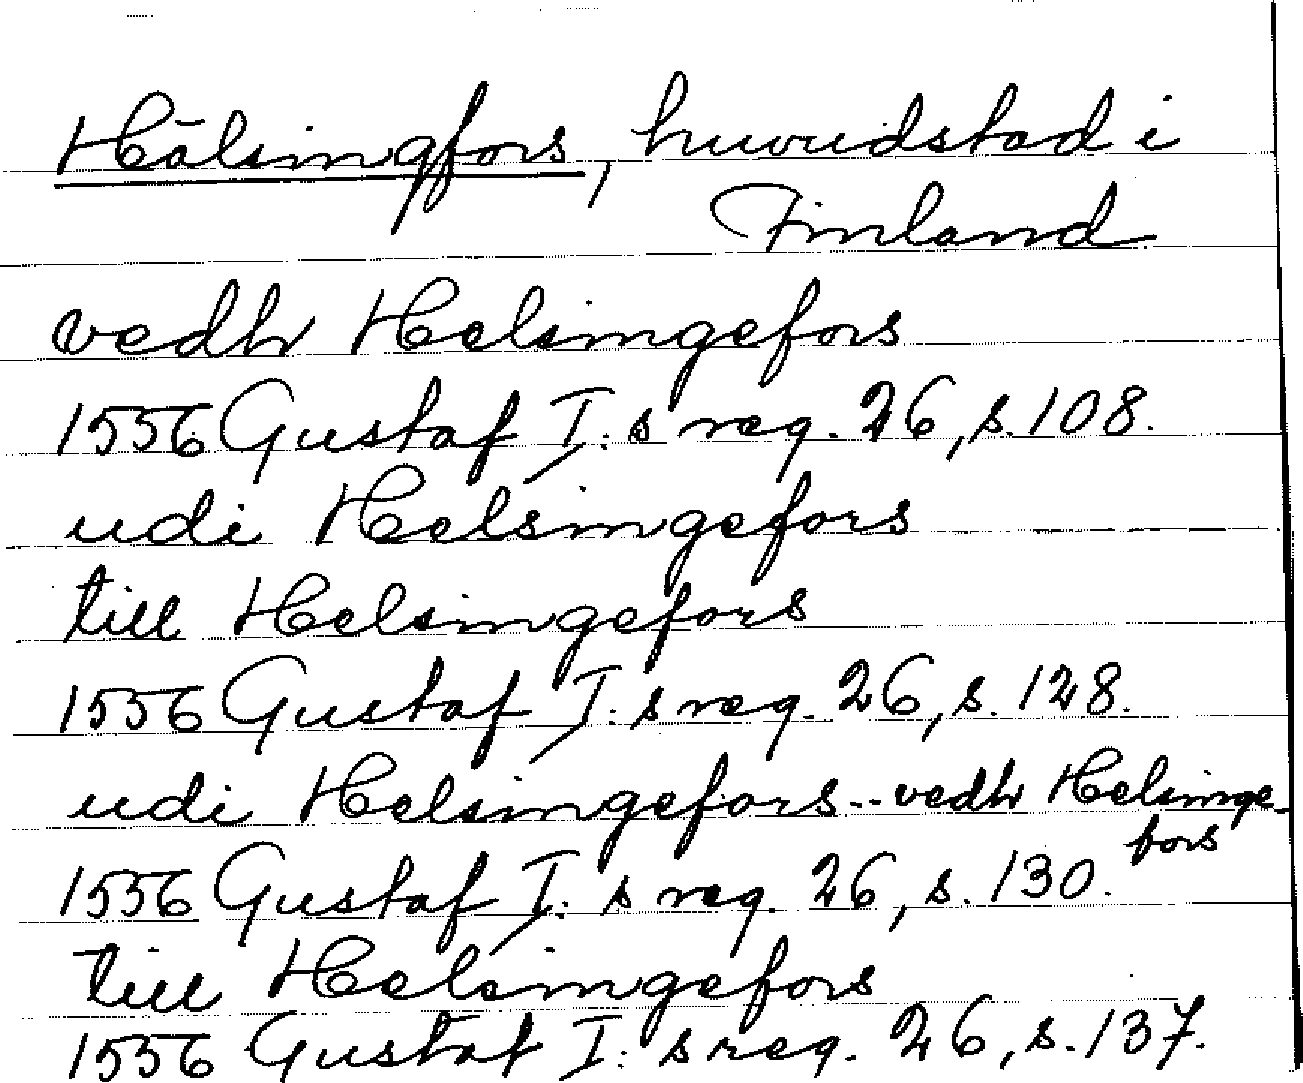 Hälsingfors, huvudstad i
Finland
vedh Helsingefors
1556 Gustaf I:s reg. 26, s. 108.
udi Helsingefors
till Helsingefors
1556 Gustaf I:s reg. 26, s. 128.
udi Helsingefors -- vedh Helsinge-
fors
1556 Gustaf I:s reg. 26, s. 130.
till Helsingefors
1556 Gustaf I:s reg. 26, s. 137.